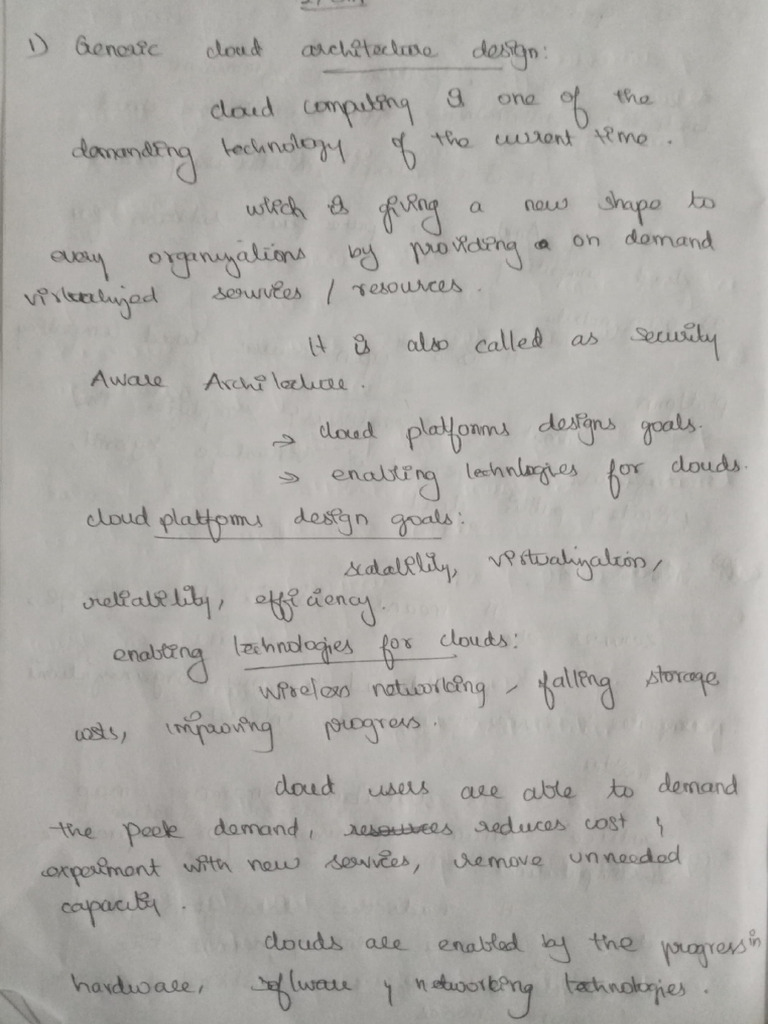 1) Generic cloud architecture design:
cloud computing is one of the
demanding technology of the current time.
which is giving a new shape to
every organizations by providing on demand
virtualized services / resources.
It is also called as security
Aware Architecture.
→ cloud platforms designs goals.
→ enabling technlogies for clouds.
cloud platforms design goals:
scalability, virtualization,
reliability, efficiency.
enabling technologies for clouds:
wireless networking, falling storage
costs, improving progress.
cloud users are able to demand
the peek demand, resources reduces cost &
experiment with new services, remove unneeded
capacity.
clouds are enabled by the progress in
hardware, software & networking technologies.